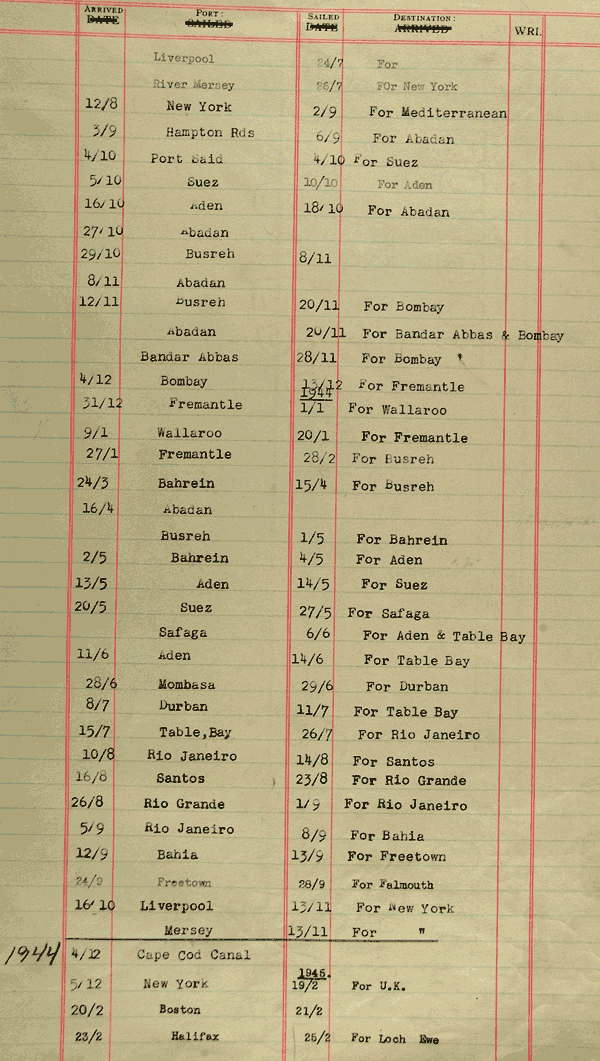 ARRIVED PORT: SAILED DESTINATION:
DATE SAILED DATE ARRIVED WRI.
Liverpool 24/7 For
River Mersey 26/7 FOr New York
12/8 New York 2/9 For Mediterranean
3/9 Hampton Rds 6/9 For Abadan
4/10 Port Said 4/10 For Suez
5/10 Suez 10/10 For Aden
16/10 Aden 18/10 For Abadan
27/10 Abadan
29/10 Busreh 8/11
8/11 Abadan
12/11 Busreh 20/11 For Bombay
Abadan 20/11 For Bandar Abbas & Bombay
Bandar Abbas 28/11 For Bombay
4/12 Bombay 13/12 For Fremantle
1944
31/12 Fremantle 1/1 For Wallaroo
9/1 Wallaroo 20/1 For Fremantle
27/1 Fremantle 28/2 For Busreh
24/3 Bahrein 15/4 For Busreh
16/4 Abadan
Busreh 1/5 For Bahrein
2/5 Bahrein 4/5 For Aden
13/5 Aden 14/5 For Suez
20/5 Suez 27/5 For Safaga
Safaga 6/6 For Aden & Table Bay
11/6 Aden 14/6 For Table Bay
28/6 Mombasa 29/6 For Durban
8/7 Durban 11/7 For Table Bay
15/7 Table,Bay 26/7 For Rio Janeiro
10/8 Rio Janeiro 14/8 For Santos
16/8 Santos 23/8 For Rio Grande
26/8 Rio Grande 1/9 For Rio Janeiro
5/9 Rio Janeiro 8/9 For Bahia
12/9 Bahia 13/9 For Freetown
24/9 Freetown 28/9 For Falmouth
16/10 Liverpool 13/11 For New York
Mersey 13/11 For "
1944 4/12 Cape Cod Canal
1945.
5/12 New York 19/2 For U.K.
20/2 Boston 21/2
23/2 Halifax 25/2 For Loch Ewe